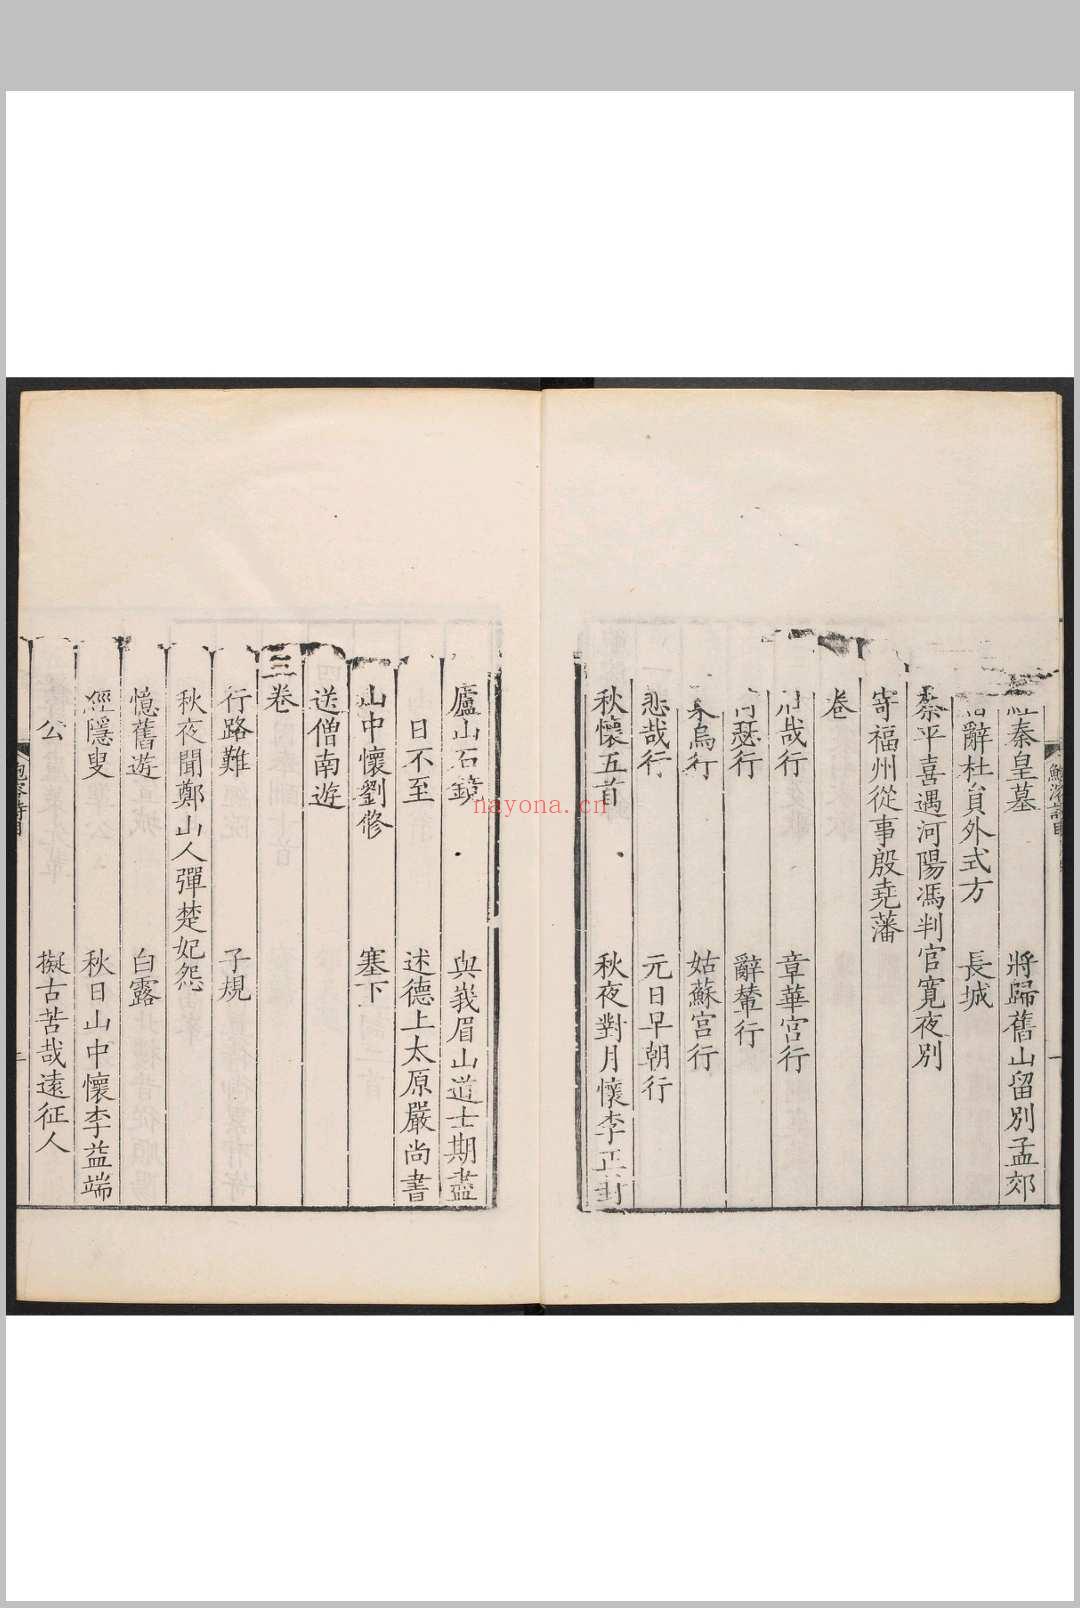 秦皇墓 將歸舊山留別孟郊
辭杜員外式方 長城
蔡平喜遇河陽馮判官寬夜別
寄福州從事殷堯藩
卷
哉行 章華宮行
瑟行 辭輦行
烏行 姑蘇宮行
悲哉行 元日早朝行
秋懷五首 秋夜對月懷李正封
廬山石鏡 與峩眉山道士期盡
日不至 述德上太原嚴尚書
山中懷劉修 塞下
送僧南遊
三卷
行路難 子規
秋夜聞鄭山人彈楚妃怨
憶舊遊 白露
經隱叟 秋日山中懷李益端
公 擬古苦哉遠征人
nayona.cn